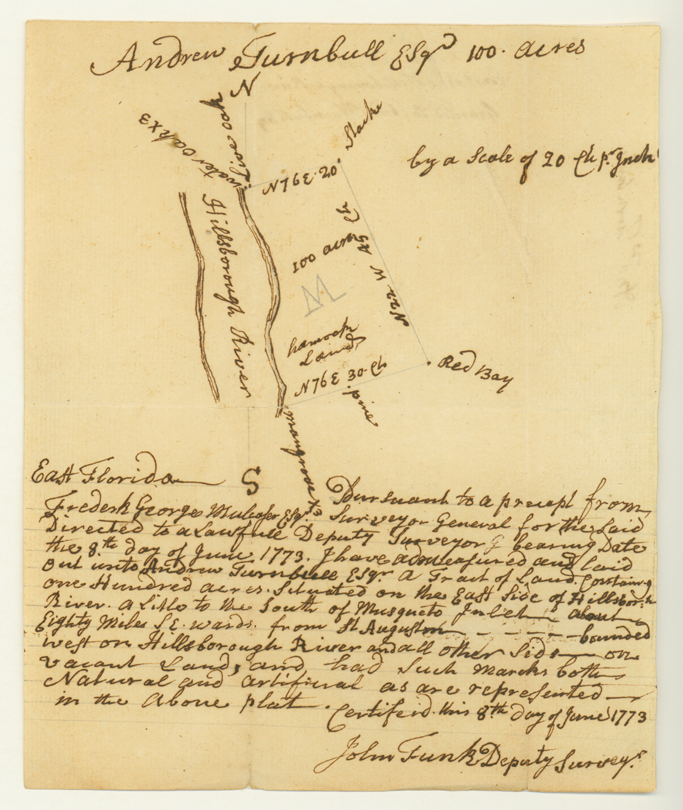 Andrew Turnbull Esqr 100. acres
N
Live oak
water oak x3
N76E. 20.
Stake
by a Scale of 20 Ch pr Inch
Hillsborough River
100 acres
N22 W 45 Ch
M
hamock
Land
N76E 30 Ch
pine
Red Bay
mangrove x3
S
East Florida
Pursuant to a precept from
Frederk George Mulcaster Esqr. Surveyor General for the Said
Directed to a Lawfull Deputy Surveyor bearing Date
the 8th day of June 1773. I have admeasured and laid
out unto Andrew Turnbull Esqr A Tract of Land. Containg
one Hundred acres. Situated on the East Side of Hillsboroh
River. a Little to the South of Musqueto Inlet about
Eighty Miles S.E. wards. from St Augustin - - - - bounded
west on Hillsborough River and all other Side on
vacant Land, and had Such Marcks both
Natural and artifical as are represented
in the Above plat.
Certifeid. this 8th day of June 1773
John Funk Deputy Surveyr.